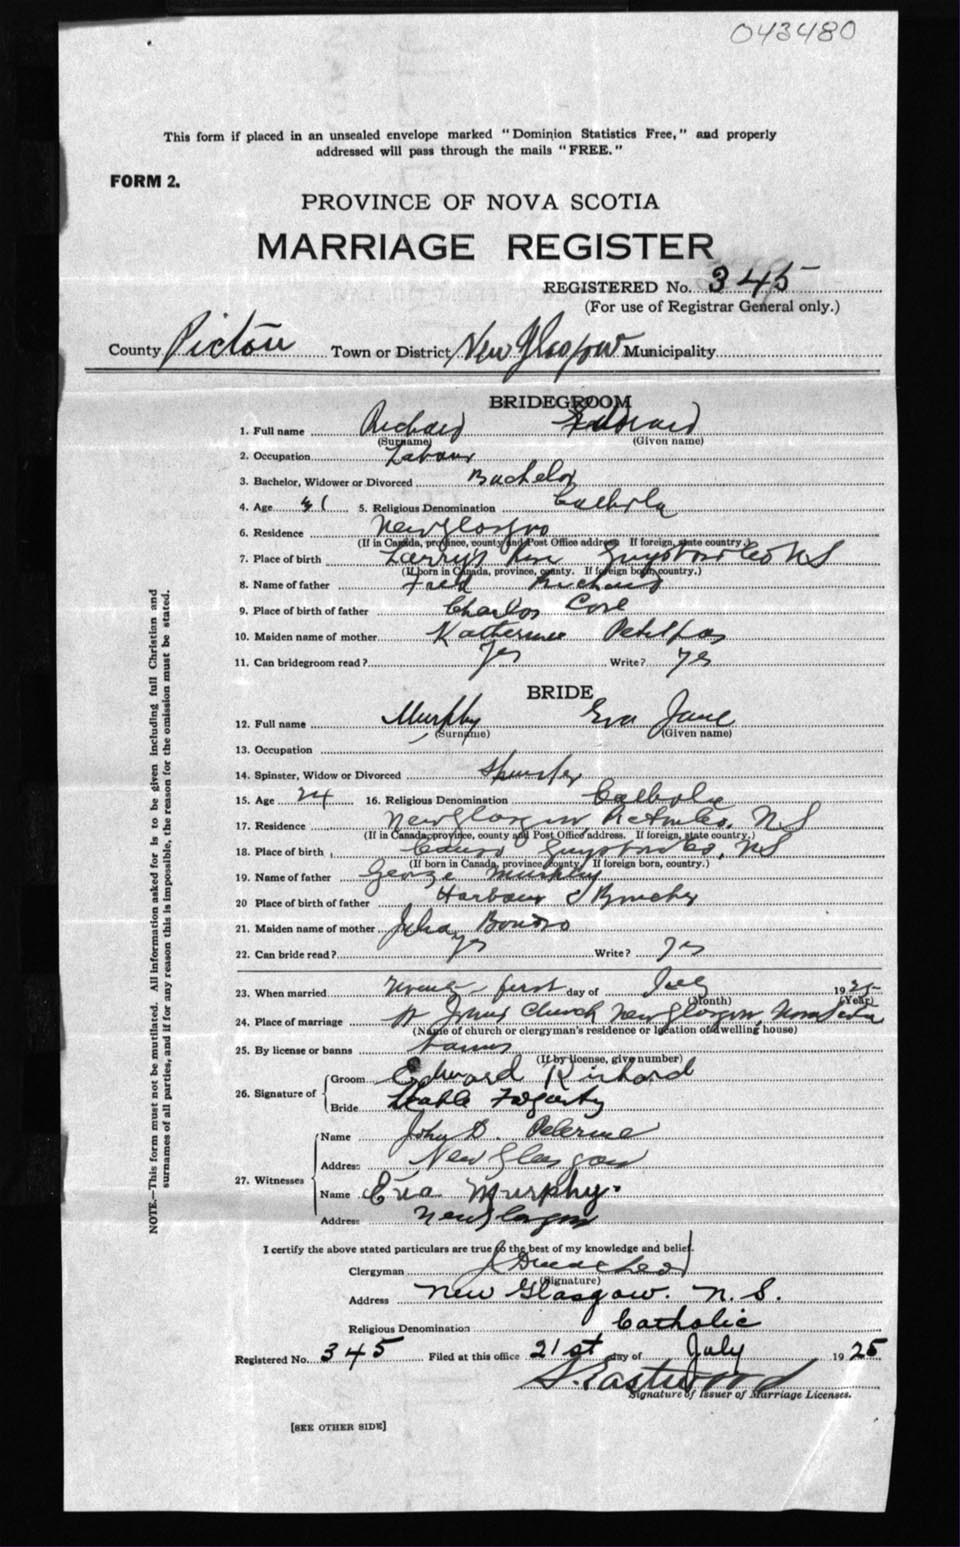 043480
This form if placed in an unsealed envelope marked "Dominion Statistics Free," and properly
addressed will pass through the mails "FREE."
FORM 2.
PROVINCE OF NOVA SCOTIA
MARRIAGE REGISTER
REGISTERED No. 345
(For use of Registrar General only.)
County Pictou Town or District New Glasgow Municipality
BRIDEGROOM
1. Full name Richard Edward
(Surname) (Given name)
2. Occupation
3. Bachelor, Widower or Divorced Bachelor
4. Age 5. Religious Denomination
6. Residence New Glasgow
(If in Canada, province, county and Post Office address If foreign, state country.)
7. Place of birth Larrys Guysboro Co NS
(If born in Canada, province, county. If foreign born, country.)
8. Name of father Richard
9. Place of birth of father Charlos Cove
10. Maiden name of mother Katherine Petitpas
11. Can bridegroom read? Yes Write? yes
BRIDE
12. Full name Murphy Eva Jane
(Surname) (Given name)
13. Occupation
14. Spinster, Widow or Divorced Spinster
15. Age 24 16. Religious Denomination
17. Residence New Glasgow, Pictou Co, NS
(If in Canada, province, county and Post Office address. If foreign, state country.)
18. Place of birth Canso Guysboro Co, NS
(If born in Canada, province, county. If foreign born, country.)
19. Name of father George Murphy
20 Place of birth of father Harbour Bouche
21. Maiden name of mother Julia
22. Can bride read? yes Write? yes
23. When married Twenty-first day of July 1925
(Month) (Year)
24. Place of marriage St Johns Church New Glasgow, Nova Scotia
(Name of church or clergyman's residence or location of dwelling house)
25. By license or banns banns
(If by license, give number)
26. Signature of Groom Edward Richard
Bride Fogarty
27. Witnesses
Name John D. Pelerine
Address New Glasgow
Name Eva Murphy.
Address New Glasgow
I certify the above stated particulars are true to the best of my knowledge and belief.
Clergyman
(Signature)
Address New Glasgow. N. S.
Religious Denomination Catholic
Registered No. 345 Filed at this office 21st day of July 1925
S. Eastwood
Signature of Issuer of Marriage Licenses.
[SEE OTHER SIDE]
NOTE.—This form must not be mutilated. All information asked for is to be given including full Christian and
surnames of all parties, and if for any reason this is impossible, the reason for the omission must be stated.